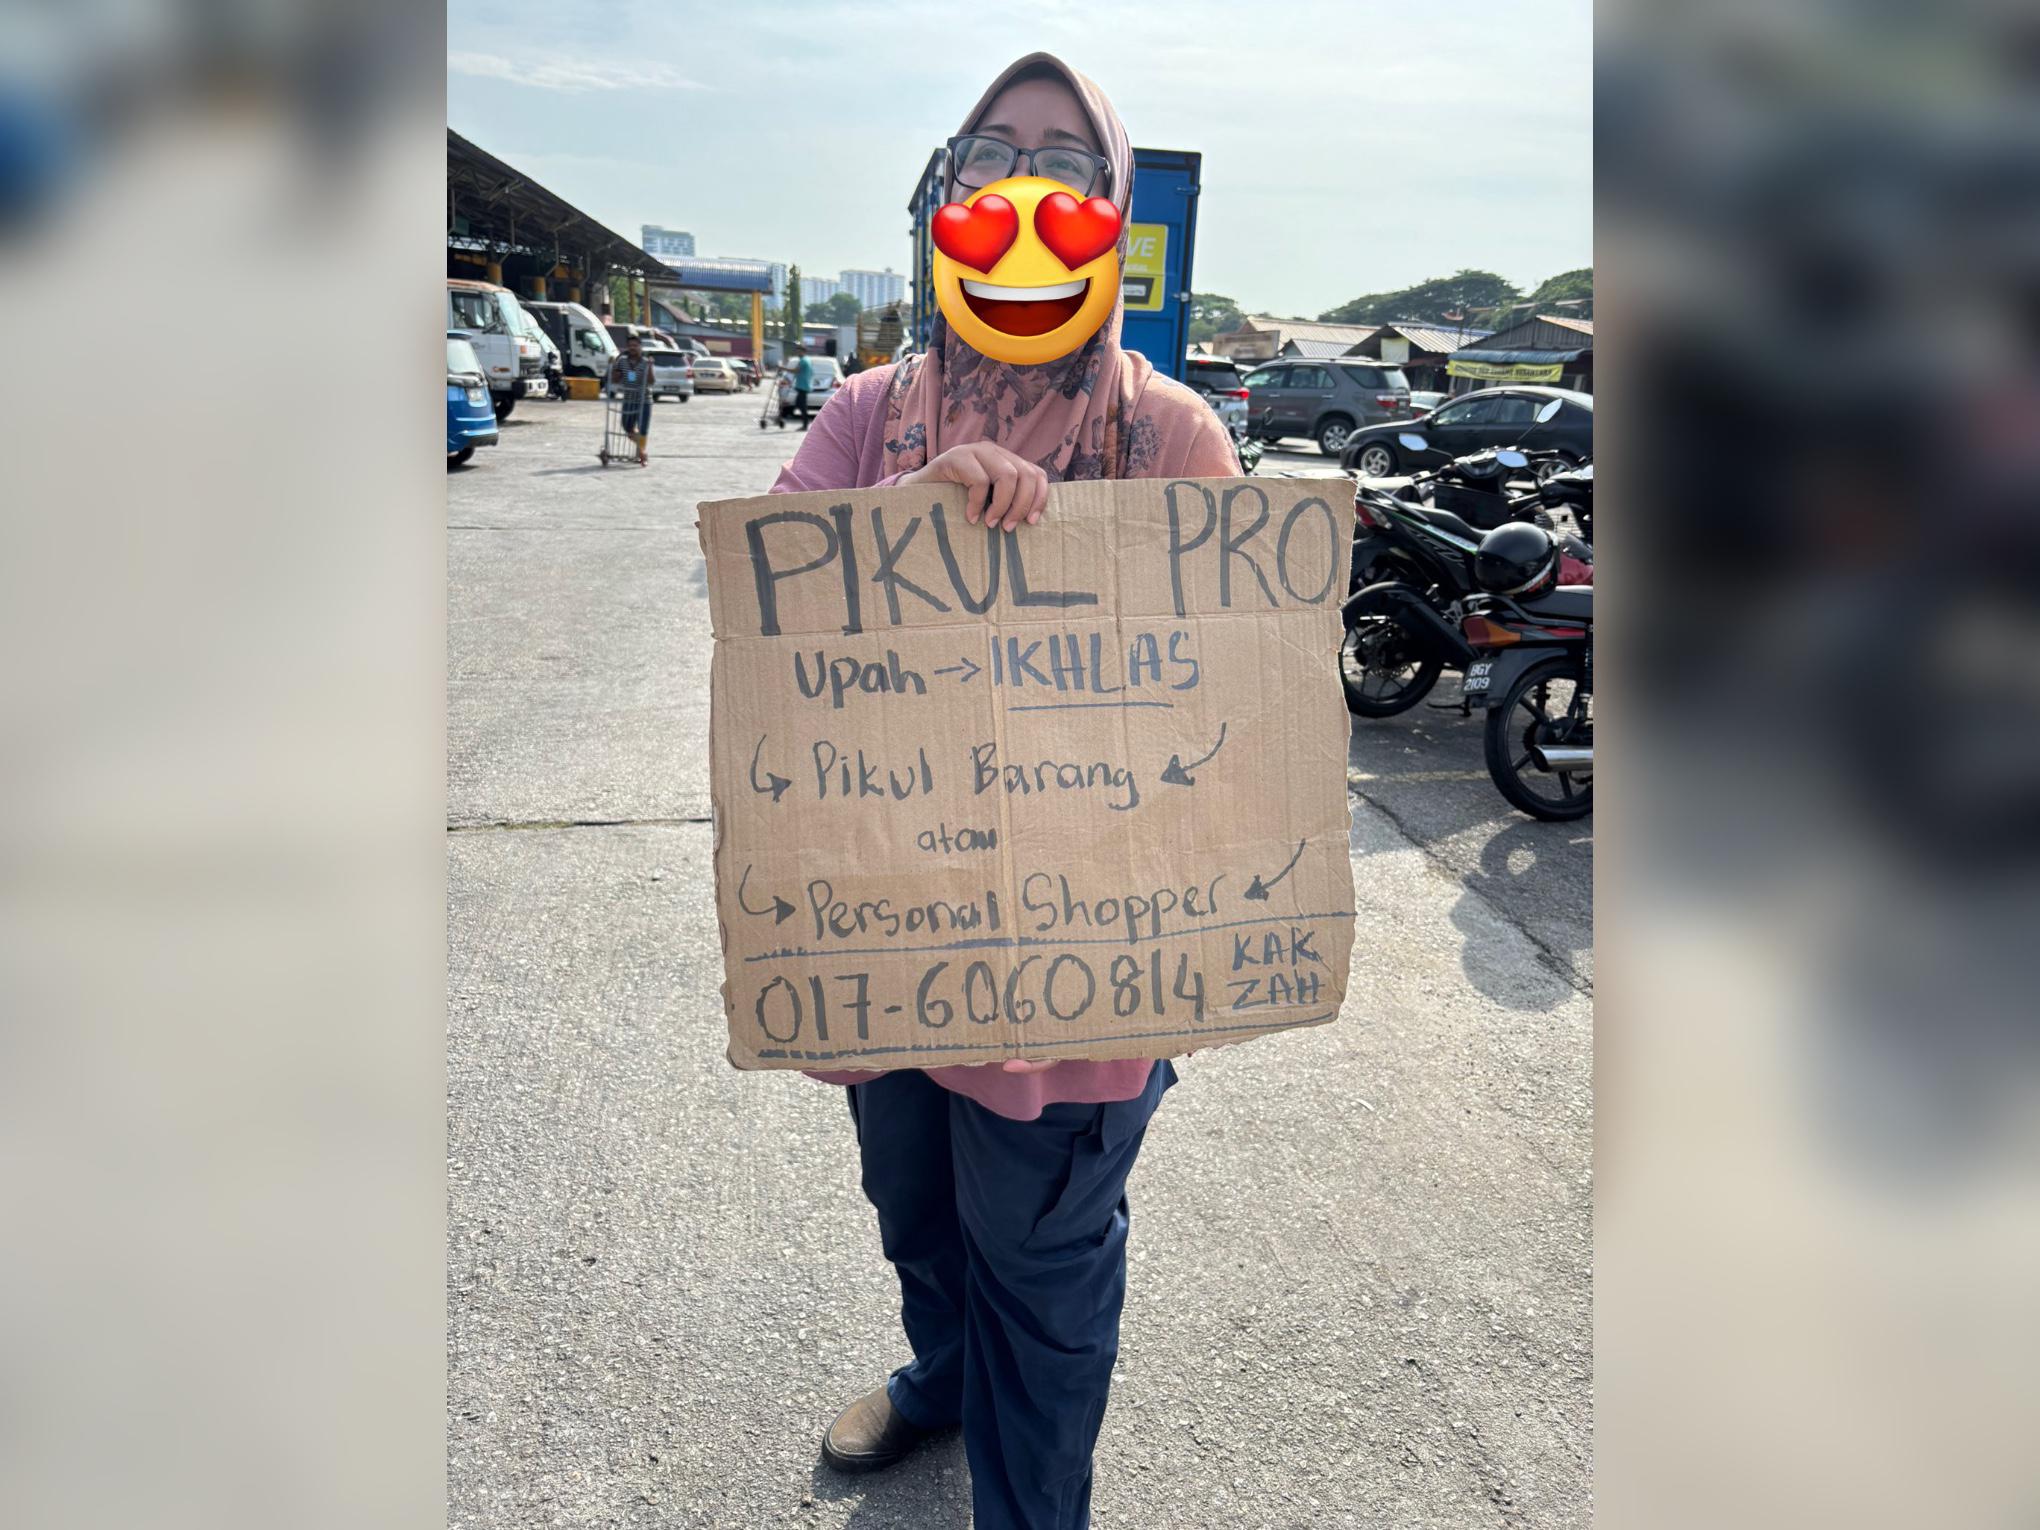 PIKUL PRO
Upah → IKHLAS
Pikul Barang
atau
Personal Shopper
017-6060814 KAK ZAH
VE
BGY
2109